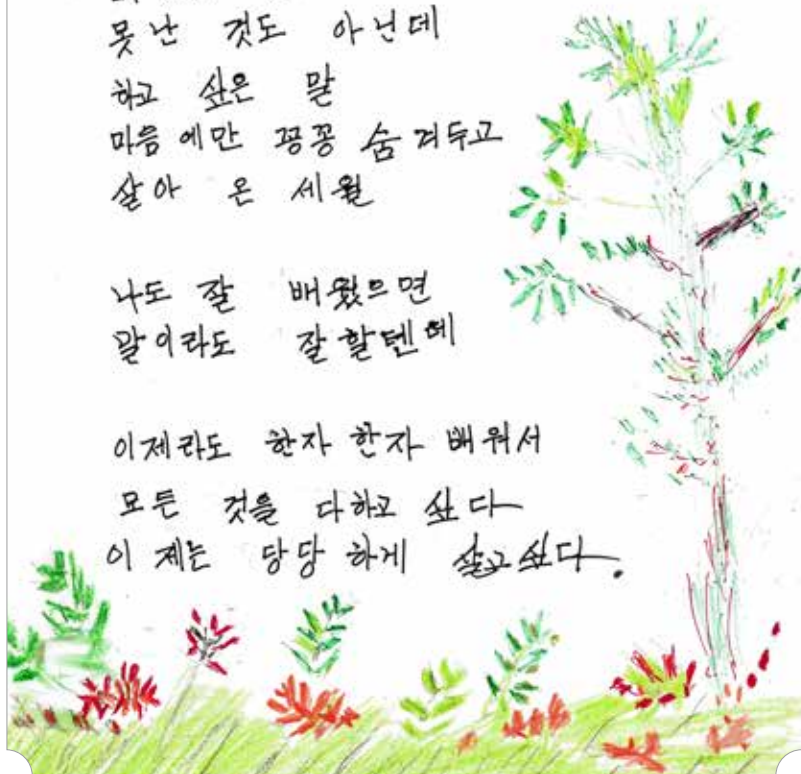 못난 것도 아닌데
하고 싶은 말
마음에만 꽁꽁 숨겨두고
살아 온 세월

나도 잘 배웠으면
말이라도 잘 할텐데

이제라도 한자 한자 배워서
모든 것을 다하고 싶다
이제는 당당하게 살고싶다.